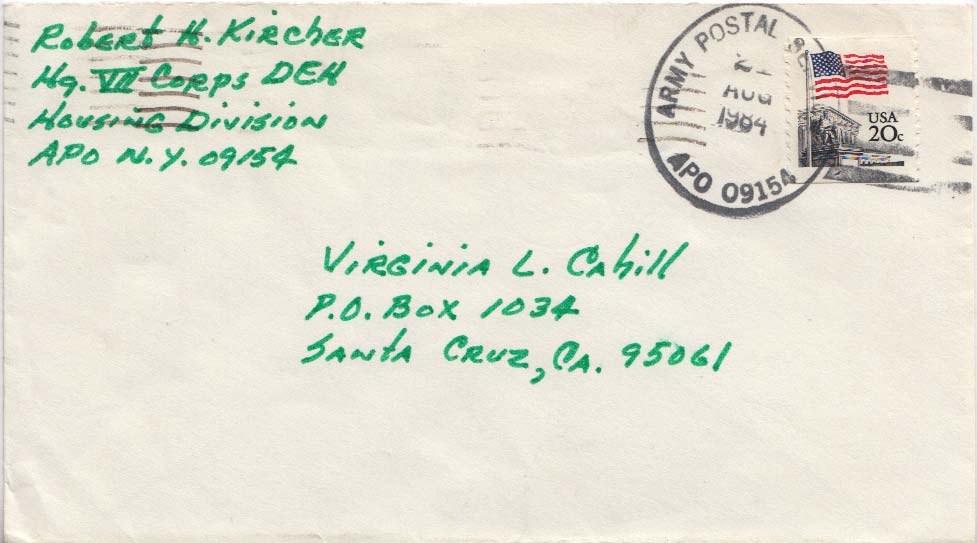 Robert H. Kircher
Hq. VII Corps DEH
Housing Division
APO N.Y. 09154
ARMY POSTAL
AUG
1984
APO 09154
USA
20c
Virginia L. Cahill
P.O. Box 1034
Santa Cruz, Ca. 95061